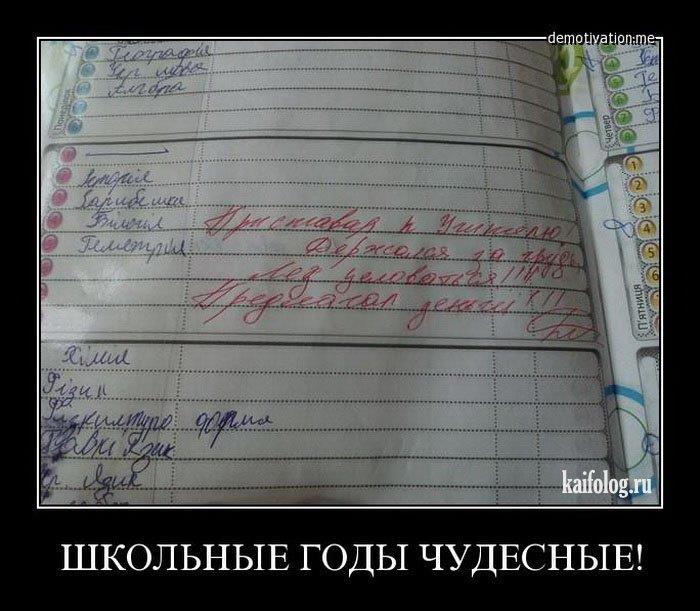 demotivation.me
География
Укр мова
Алгебра
Понеділок
Четвер
7
8
История
Биология
Геометрия
Приставал к Учителю!
Держался за грудь
Лез целоваться!!!!
Предлагал деньги!!!!
1
2
3
4
5
6
П'ятниця
Хімия
Фізик
Фізкилтура форма
Язик
Язик
kaifolog.ru
ШКОЛЬНЫЕ ГОДЫ ЧУДЕСНЫЕ!